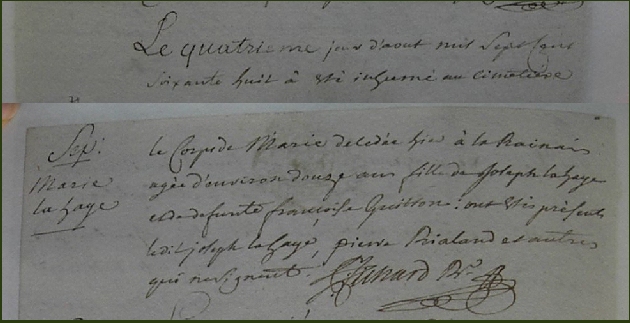 Le quatrieme jour d'aout mil Sept Cent
soixante huit à été inhumé au Cimetière
Sep:
Marie
la haye
le Corps de Marie decedée hier à la Rainais
agée d'environ douze ans fille de Joseph la haye
et de defunte françoise Guittone: ont étés présents
ledit joseph la haye, pierre Prialand et autres
qui ne signent.